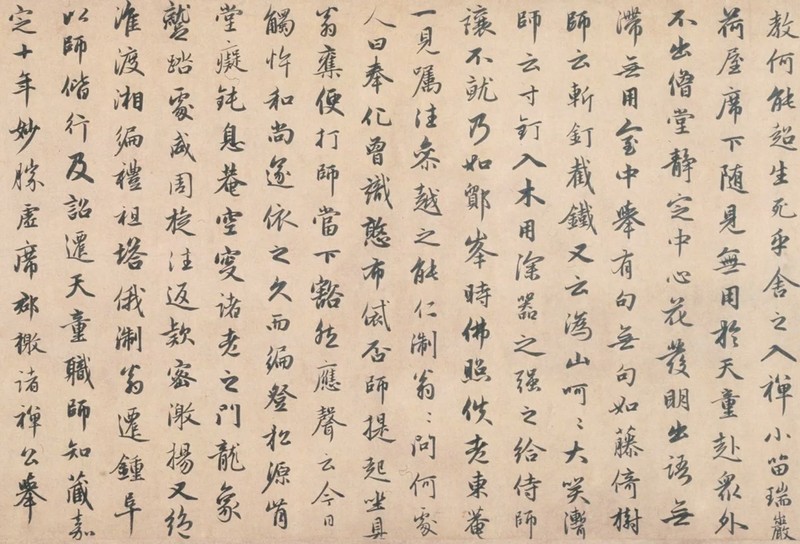 教何能超生死乎舍之入禅小笛瑞巖
荷屋席下随見無用於天童赴衆外
不出僧堂静定中心花發明出語無
滯無用室中舉有句無句如藤倚樹
師云斬釘截鐵又云溈山呵〻大笑聻
師云寸釘入木用深器之强之給侍師
讓不就乃如鄮峯時佛照佚老東菴
一見嘱注參越之能仁淛翁〻問何處
人曰奉化曾識憨布袋否師提起坐具
翁擬便打師當下豁然應聲云今日
觸忤和尚遂依之久而徧登松源肯
堂癡鈍息菴空叟諸老之門龍象
蹴踏處咸周旋往返欵密激揚又絶
淮渡湘徧禮祖塔俄淛翁遷鍾阜
以師偕行及詔遷天童職師知藏嘉
定十年妙勝虚席郡檄諸禅公舉